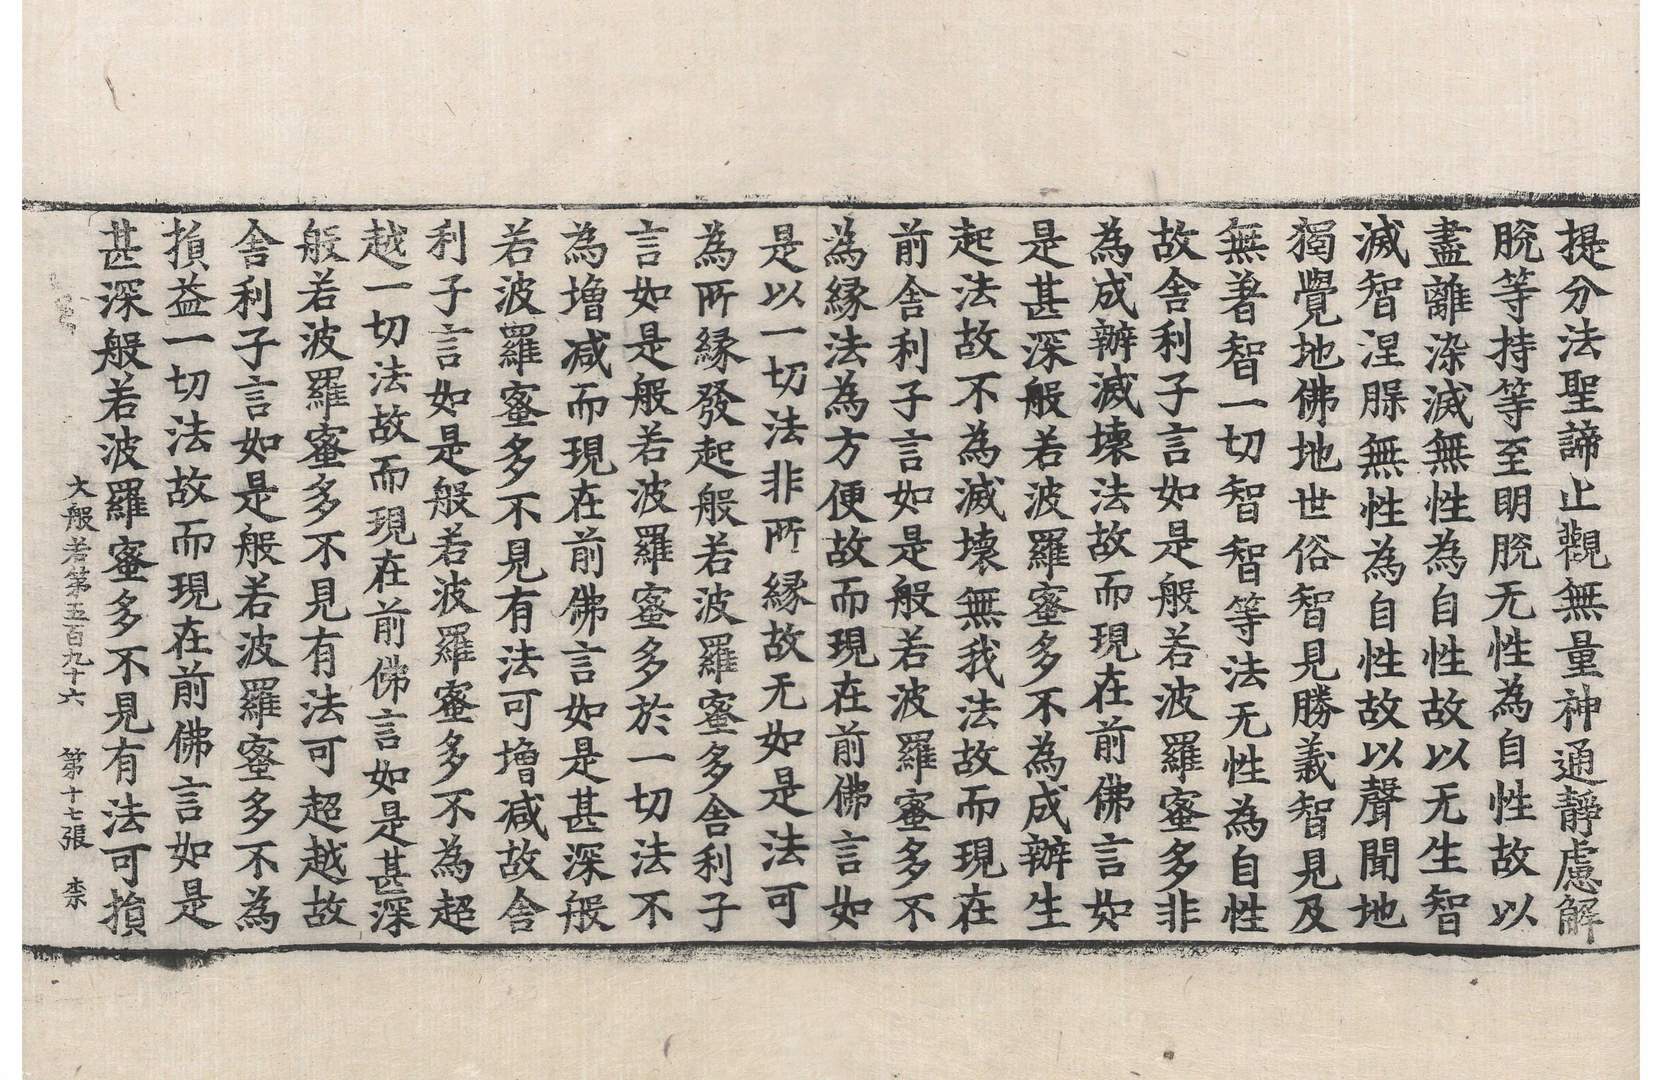 提分法聖諦止觀無量神通靜慮解
脫等持等至明脫无性為自性故以
盡離染滅無性為自性故以无生智
滅智涅槃無性為自性故以聲聞地
獨覺地佛地世俗智見勝義智見及
無著智一切智智等法无性為自性
故舍利子言如是般若波羅蜜多非
為成辦滅壞法故而現在前佛言如
是甚深般若波羅蜜多不為成辦生
起法故不為滅壞無我法故而現在
前舍利子言如是般若波羅蜜多不
為緣法為方便故而現在前佛言如
是以一切法非所緣故无如是法可
為所緣發起般若波羅蜜多舍利子
言如是般若波羅蜜多於一切法不
為增減而現在前佛言如是甚深般
若波羅蜜多不見有法可增減故舍
利子言如是般若波羅蜜多不為超
越一切法故而現在前佛言如是甚深
般若波羅蜜多不見有法可超越故
舍利子言如是般若波羅蜜多不為
損益一切法故而現在前佛言如是
甚深般若波羅蜜多不見有法可損
大般若第五百九十六 第十七張 柰